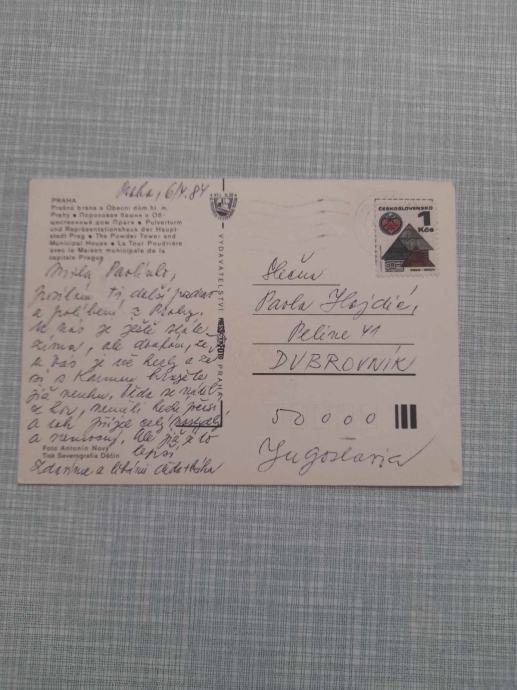 Praha, 6/V. 84
PRAHA
Prašná brána a Obecní dům hl. m.
Prahy • Пороховая башня и Об-
щественный дом Праги • Pulverturm
und Repräsentationshaus der Haupt-
stadt Prag • The Powder Tower and
Municipal House • La Tour Poudrière
avec la Maison municipale de la
capitale Prague
Milá Paolinko,
posílám Ti další pozdrav
a políbení z Prahy.
U nás je ještě stále
zima, ale doufám, že
u Vás je už hezky a že
si s Karmen hrajete
již venku. Děda se vrátil
z hor,
a tak přijel celý
a Ale již je to
lepší
Zdravíme a líbáme děda+bába
Foto Antonín Nový
Tisk Severografia Děčín
VYDAVATELSTVÍ PRAHA
ČESKOSLOVENSKO
1
Kčs
Slečna
Paola Hojdić,
Peline 41
DUBROVNÍK
50000
Jugoslavia